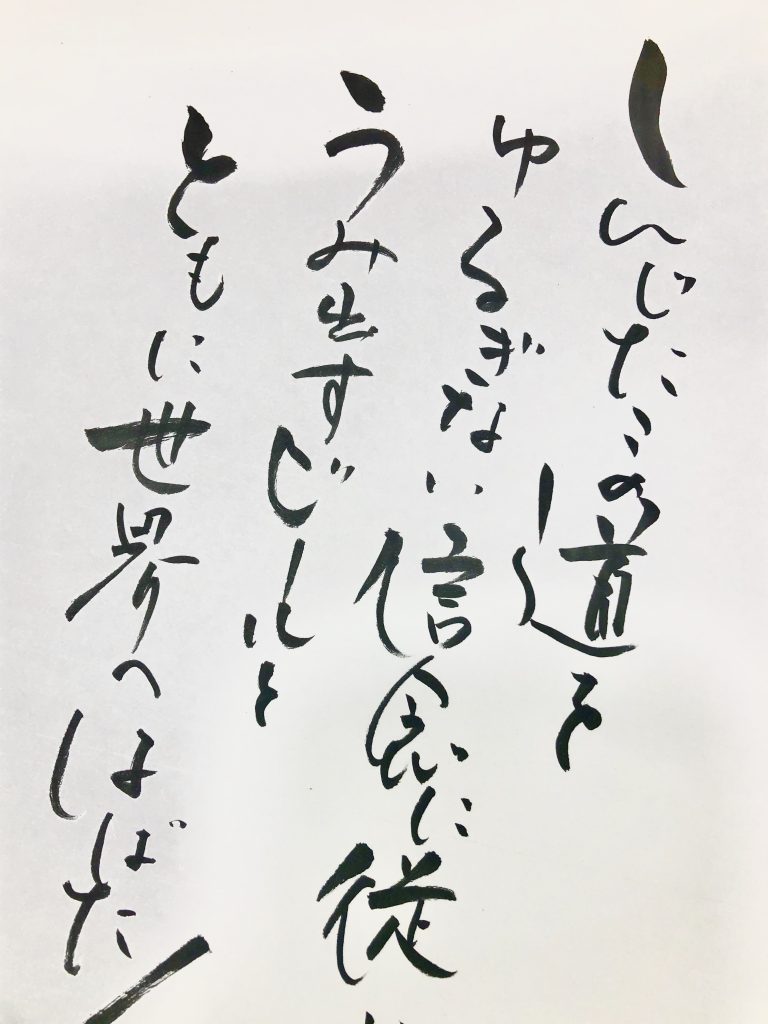 しんじたこの道を
ゆるぎない信念に従
うみ出すビールと
ともに世界へはばた